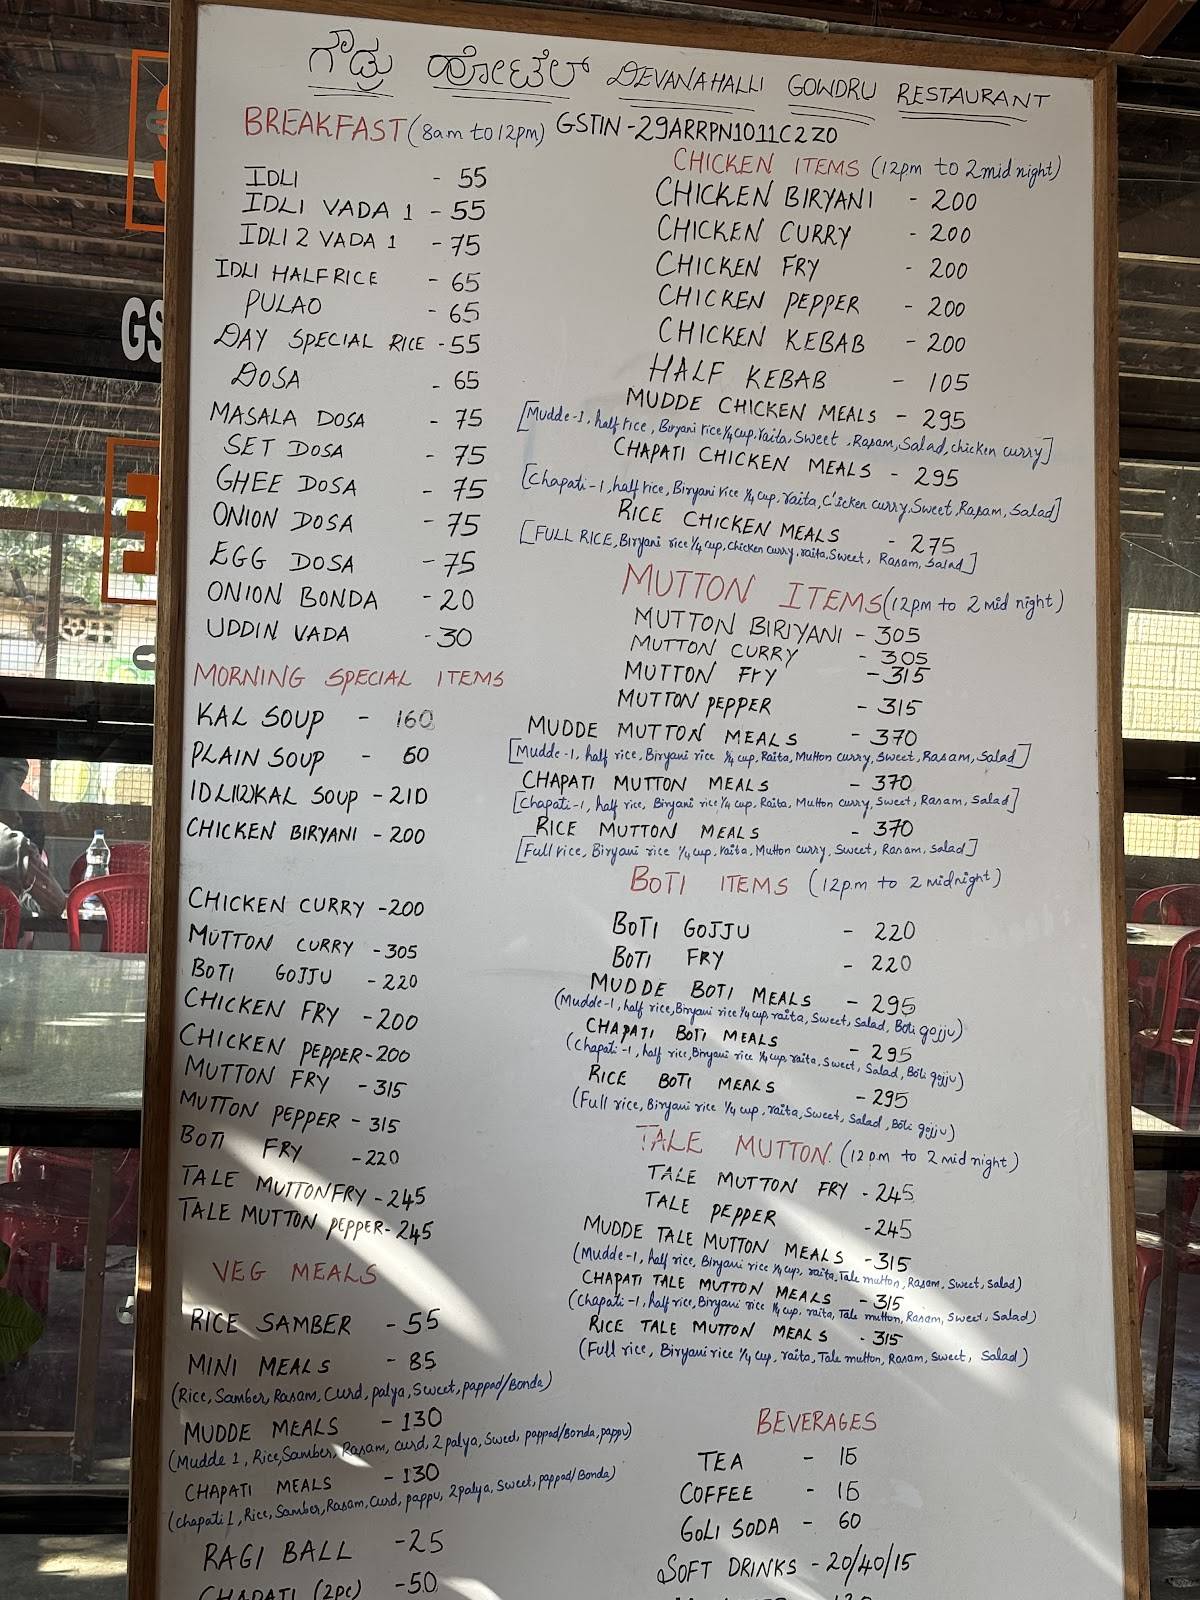 ಗೌಡ್ರು ಹೋಟೆಲ್ DEVANAHALLI GOWDRU RESTAURANT
BREAKFAST (8am to 12pm) GSTIN -29ARRPN1011C2Z0
IDLI - 55
IDLI VADA 1 - 55
IDLI 2 VADA 1 - 75
IDLI HALF RICE - 65
PULAO - 65
DAY SPECIAL RICE - 55
DOSA - 65
MASALA DOSA - 75
SET DOSA - 75
GHEE DOSA - 75
ONION DOSA - 75
EGG DOSA - 75
ONION BONDA - 20
UDDIN VADA - 30
MORNING SPECIAL ITEMS
KAL SOUP - 160
PLAIN SOUP - 60
IDLI(2)KAL SOUP - 210
CHICKEN BIRYANI - 200
CHICKEN CURRY - 200
MUTTON CURRY - 305
BOTI GOJJU - 220
CHICKEN FRY - 200
CHICKEN PEPPER - 200
MUTTON FRY - 315
MUTTON PEPPER - 315
BOTI FRY - 220
TALE MUTTON FRY - 245
TALE MUTTON PEPPER - 245
VEG MEALS
RICE SAMBER - 55
MINI MEALS - 85
(Rice, Samber, Rasam, Curd, palya, Sweet, pappad/Bonda)
MUDDE MEALS - 130
(Mudde 1, Rice, Samber, Rasam, curd, 2 palya, Sweet, pappad/Bonda, pappu)
CHAPATI MEALS - 130
(chapati 1, Rice, Samber, Rasam, Curd, pappu, 2 palya, Sweet, pappad/Bonda)
RAGI BALL - 25
CHAPATI (2pc) - 50
CHICKEN ITEMS (12pm to 2 mid night)
CHICKEN BIRYANI - 200
CHICKEN CURRY - 200
CHICKEN FRY - 200
CHICKEN PEPPER - 200
CHICKEN KEBAB - 200
HALF KEBAB - 105
MUDDE CHICKEN MEALS - 295
[Mudde-1, half rice, Biryani rice 1/4 cup, raita, Sweet, Rasam, Salad, chicken curry]
CHAPATI CHICKEN MEALS - 295
[Chapati-1, half rice, Biryani rice 1/4 cup, raita, C'icken curry, Sweet, Rasam, Salad]
RICE CHICKEN MEALS - 275
[FULL RICE, Biryani rice 1/4 cup, chicken curry, raita, Sweet, Rasam, Salad]
MUTTON ITEMS (12p.m to 2 mid night)
MUTTON BIRIYANI - 305
MUTTON CURRY - 305
MUTTON FRY - 315
MUTTON PEPPER - 315
MUDDE MUTTON MEALS - 370
[Mudde-1, half rice, Biryani rice 1/4 cup, Raita, Mutton curry, Sweet, Rasam, Salad]
CHAPATI MUTTON MEALS - 370
[Chapati-1, half rice, Biryani rice 1/4 cup, Raita, Mutton curry, Sweet, Rasam, Salad]
RICE MUTTON MEALS - 370
[Full rice, Biryani rice 1/4 cup, raita, Mutton curry, Sweet, Rasam, Salad]
BOTI ITEMS (12p.m to 2 midnight)
BOTI GOJJU - 220
BOTI FRY - 220
MUDDE BOTI MEALS - 295
(Mudde-1, half rice, Biryani rice 1/4 cup, raita, Sweet, Salad, Boti gojju)
CHAPATI BOTI MEALS - 295
(Chapati-1, half rice, Biryani rice 1/4 cup, raita, Sweet, Salad, Boti gojju)
RICE BOTI MEALS - 295
(Full rice, Biryani rice 1/4 cup, raita, Sweet, Salad, Boti gojju)
TALE MUTTON. (12 p.m to 2 mid night)
TALE MUTTON FRY - 245
TALE PEPPER - 245
MUDDE TALE MUTTON MEALS - 315
(Mudde-1, half rice, Biryani rice 1/4 cup, raita, Tale mutton, Rasam, Sweet, Salad)
CHAPATI TALE MUTTON MEALS - 315
(Chapati-1, half rice, Biryani rice 1/4 cup, raita, Tale mutton, Rasam, Sweet, Salad)
RICE TALE MUTTON MEALS - 315
(Full rice, Biryani rice 1/4 cup, raita, Tale mutton, Rasam, Sweet, Salad)
BEVERAGES
TEA - 15
COFFEE - 15
GOLI SODA - 60
SOFT DRINKS - 20/40/15
GS